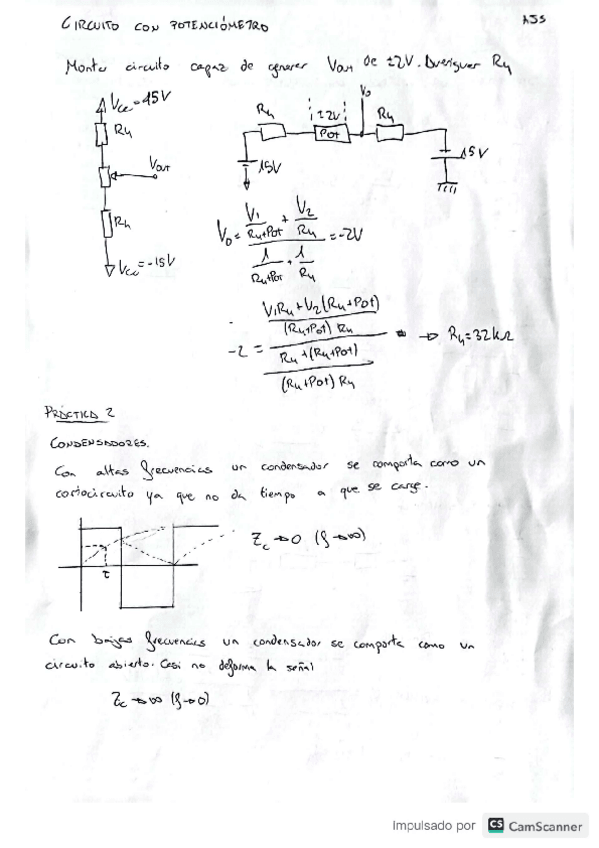 CIRCUITO CON POTENCIÓMETRO
AJS
Montar circuito capaz de generar Vout de ±2V. Averiguar R4
Vcc=15V
R4
Vout
R4
Vcc=-15V
V0
R4
±2V
Pot
R4
15V
15V
V0 = (V1/(R4+Pot) + V2/R4) / (1/(R4+Pot) + 1/R4) = -2V
-2 = ((V1R4+V2(R4+Pot))/((R4+Pot) R4)) / ((R4+(R4+Pot))/((R4+Pot) R4)) → R4=32kΩ
PRÁCTICA 2
CONDENSADORES.
Con altas frecuencias un condensador se comporta como un
cortocircuito ya que no da tiempo a que se carge.
τ
Zc→0 (f→∞)
Con bajas frecuencias un condensador se comporta como un
circuito abierto. Casi no deforma la señal
Zc→∞ (f→0)
Impulsado por CS CamScanner